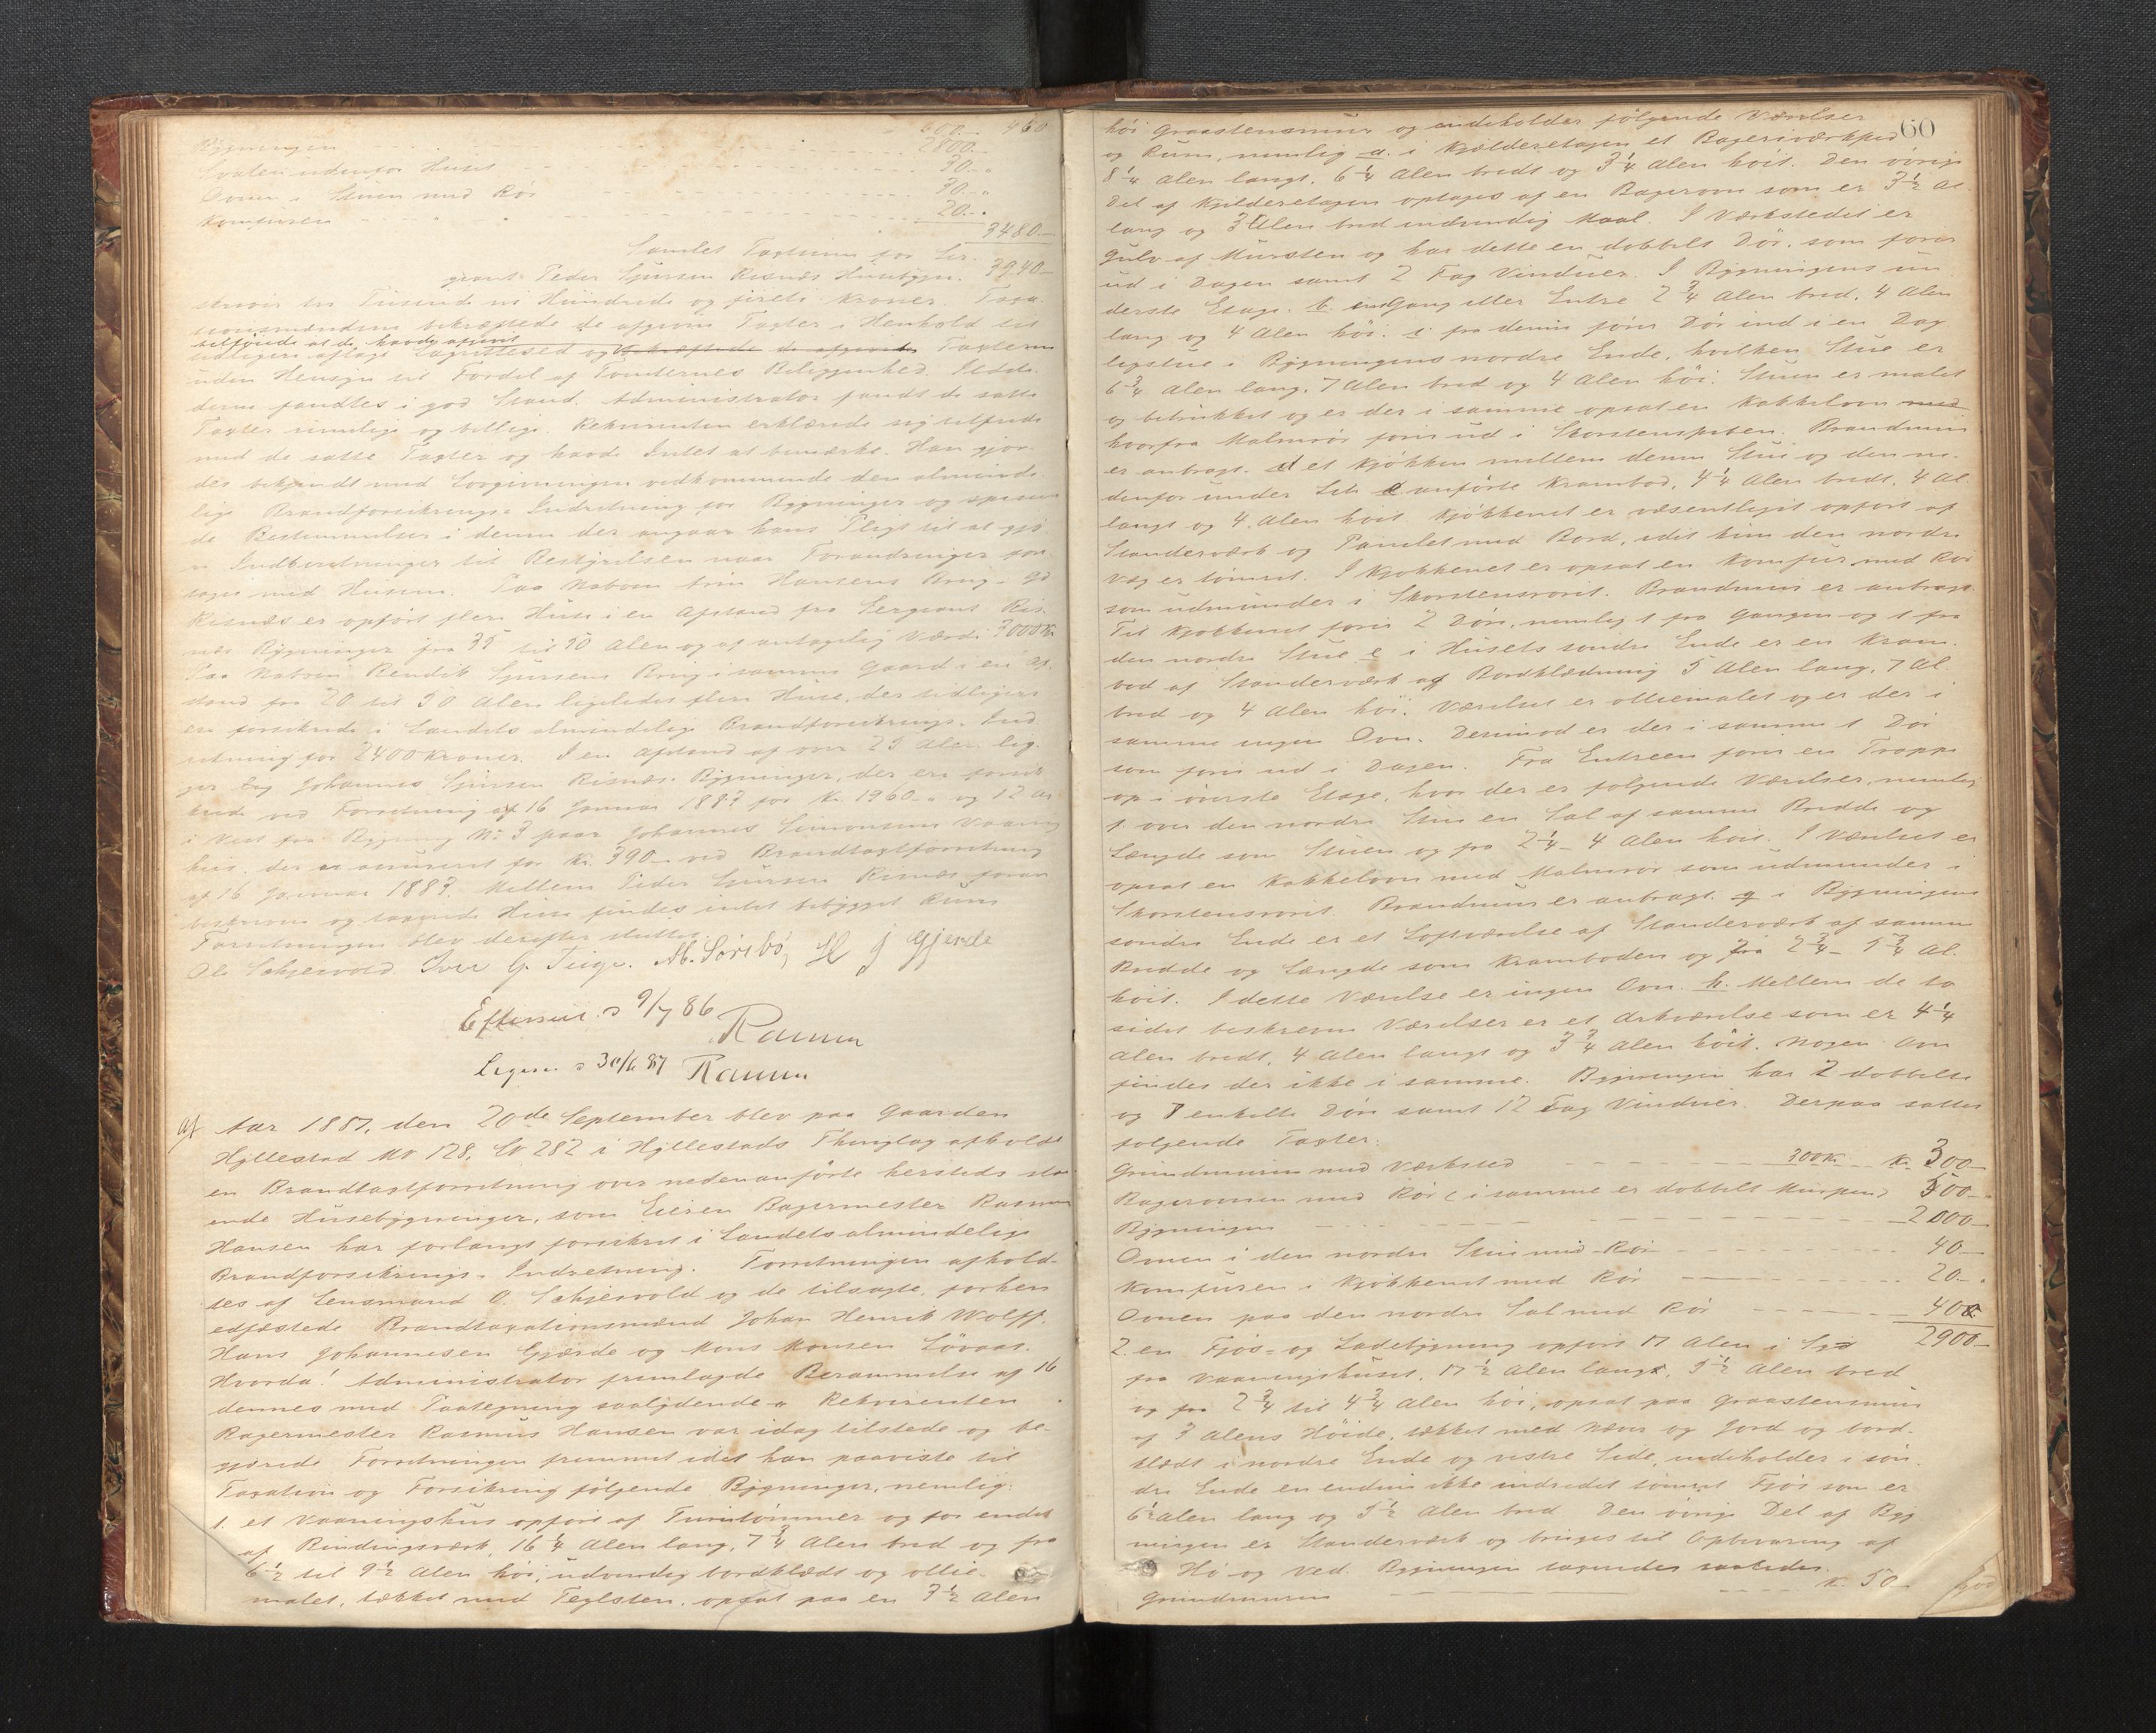 600.- 460
Bygningen 2800.-
Svalen udenfor Huset 30.-
Ovnen i Stuen med Rör 30.-
Komfuren 20.-
3480.-
Samlet Taxtsum for Ser-
geant Peder Sjursen Risnæs Husebygn. 3940-
skriver tre Tusinde ni Hundrede og fireti Kroner. Taxa-
tionsmændene bekræftede de afgivne Taxter i Henhold til
tilföiede at de havde afgivet
tidligere aflagt Lagrettesed og bekræftede de afgivne Taxterne
uden Hensyn til Fordel af Tomternes Beliggenhed. Ildste-
derne fandtes i god Stand. Administrator fandt de satte
Taxter rimelige og billige. Rekvirenten erklærede sig tilfreds
med de satte Taxter og havde Intet at bemærke. Han gjor-
des bekjendt med Lovgivningen vedkommende den alminde-
lige Brandforsikrings-Indretning for Bygninger og specielt
de Bestemmelser i denne der angaar hans Pligt til at gjö-
re Indberetninger til Bestyrelsen naar Forandringer fore-
tages med Husene. Paa Naboen Hansens Brug i Gd
Risnæs er opfört flere Huse i en Afstand fra Sergeant Ris-
næs Bygninger fra 35 til 50 Alen og af antagelig Værdi 3000 Kr
Paa Naboen Bendik Sjursens Brug i samme Gaard i en Af-
stand fra 20 til 50 Alen ligeledes flere Huse, der tidligere
ere forsikrede i Landets almindelige Brandforsikrings-Ind
retning for 2400 Kroner. I en Afstand af over 25 Alen lig-
ger Johannes Sjursen Risnæs Bygninger, der ere forsik
rede ved Forretning af 16 Januar 1883 for Kr. 1960.- og 12 Al
i Vest fra Bygning No 3 paa Johannes Simonsens Vaanings
hus, der er assureret for Kr. 390- ved Brandtaxtforretning
af 16 Januar 1883. Mellem Peder Sjursen Risnæs foran
beskrevne og taxerede Huse findes intet bebygget Rum
Forretningen blev derefter sluttet.
Ol. Schjesvold. Iver G. Teige. M. Sörebö, H J Gjerde
Efterseet d 9/7 86
Ramm
Ligesaa d 30/6 87 Ramm
af Aar 1887, den 20de September blev paa Gaarden
Hyllestad MN 128, LN 282 i Hyllestads Thinglag afholdt
en Brandtaxtforretning over nedenanförte hersteds sta-
ende Husebygninger, som Eieren Bagermester Rasmus
Hansen har forlangt forsikret i Landets almindelige
Brandforsikrings-Indretning. Forretningen afhold-
tes af Lensmand O. Schjesvold og de tilsagte, forhen
edfæstede Brandtaxationsmænd Johan Henrik Wolff,
Hans Johannesen Gjærde og Mons Monsen Lövaas.
Hvorda! Administrator fremlagde Berammelse af 16
dennes med Paategning saalydende " Rekvirenten
Bagermester Rasmus Hansen var idag tilstede og be-
gjærede Forretningen fremmet idet han paaviste til
Taxation og Forsikring fölgende Bygninger, nemlig:
1. et Vaaningshus opfört af Furutömmer og for endel
af Bindingsværk, 16 1/4 Alen lang, 7 3/4 Alen bred og fra
6 1/2 til 9 1/2 Alen höi, udvendig bordklædt og ollie-
malet, tækket med Teglsten, opsat paa en 3 1/2 Alen
60
höi Graastensmur og indeholder fölgende Værelser
og Rum, nemlig a. i Kjelderetagen et Bagerivörksted
8 1/4 Alen langt, 6 1/4 Alen bredt og 3 1/4 Alen höit. Den övrige
Del af Kjelderetagen optages af en Bagerovn som er 3 1/2 Al
lang og 3 Alen bred indvendig Maal. I Værkstedet er
Gulv af Mursten og har dette en dobbelt Dör, som förer
ud i Dagen samt 2 Fag Vinduer. I Bygningens un
derste Etage. b. en Gang eller Entre 2 3/4 Alen bred, 4 Alen
lang og 4 Alen höi. c fra denne förer Dör ind i en Dag
ligstue i Bygningens nordre Ende, hvilken Stue er
6 3/4 Alen lang, 7 Alen bred og 4 Alen höi. Stuen er malet
og betrukket og er der i samme opsat en Kakkelovn med
hvorfra Malmrör förer ud i Skorstenspiben. Brandmur
er anbragt. d et Kjökken mellem denne Stue og den ne-
denfor under Litr. e anförte Krambod, 4 1/4 Alen bredt, 4 Al
langt og 4 Alen höit. Kjökkenet er væsentligst opfört af
Standerværk og Panelet med Bord, idet kun den nordre
Væg er tömret. I Kjökkenet er opsat en Komfur med Rör
som udmunder i Skorstensröret. Brandmur er anbragt.
Til Kjökkenet förer 2 Döre, nemlig 1 fra Gangen og 1 fra
den nordre Stue e i Husets söndre Ende er en Kram-
bod af Standerværk og Bordklædning 5 Alen lang, 7 Al
bred og 4 Alen höi. Værelset er olliemalet og er der i
samme ingen Ovn. Derimod er der i samme 1 Dör
som förer ud i Dagen. Fra Entreen förer en Trappe
op i överste Etage, hvor der er fölgende Værelser, nemlig
f. over den nordre Stue en Sal af samme Bredde og
Længde som Stuen og fra 2 1/4 - 4 Alen höi. I Værelset er
opsat en Kakkelovn med Malmrör som udmunder i
Skorstensröret. Brandmur er anbragt. g i Bygningens
söndre Ende er et Loftværelse af Standerværk af samme
Bredde og Længde som Kramboden og fra 2 3/4 - 5 3/4 Al.
höit. I dette Værelse er ingen Ovn. h. Mellem de to
sidst beskrevne Værelser er et Arkværelse som er 4 1/4
Alen bredt, 4 Alen langt og 3 3/4 Alen höit. Nogen Ovn
findes der ikke i samme. Bygningen har 2 dobbelte
og 7 enkelte Döre samt 12 Fag Vinduer. Derpaa sattes
fölgende Taxter:
Grundmuren med Værksted 300 Kr. Kr. 300-
Bagerovnen med Rör (i samme er dobbelt Murpen) 500-
Bygningen 2000-
Ovnen i den nordre Stue med Rör 40-
Komfuren i Kjökkenet med Rör 20-
Ovnen paa den nordre Sal med Rör 40
2. en Fjös- og Ladebygning opfört 17 Alen i Syd 2900-
fra Vaaningshuset, 17 1/2 Alen lang, 5 1/2 Alen bred
og fra 2 3/4 til 4 3/4 Alen höi, opsat paa Graastensmur
af 3 Alens Höide, tækket med Næver og Jord og bord-
klædt i nordre Ende og vestre Side, indeholder i sön-
dre Ende en endnu ikke indredet tömret Fjös som er
6 1/2 Alen lang og 5 1/2 Alen bred. Den övrige Del af Byg
ningen er Standerværk og bruges til Opbevaring af
Hö og Ved. Bygningen taxeredes saaledes.
Grundmuren Kr. 50-